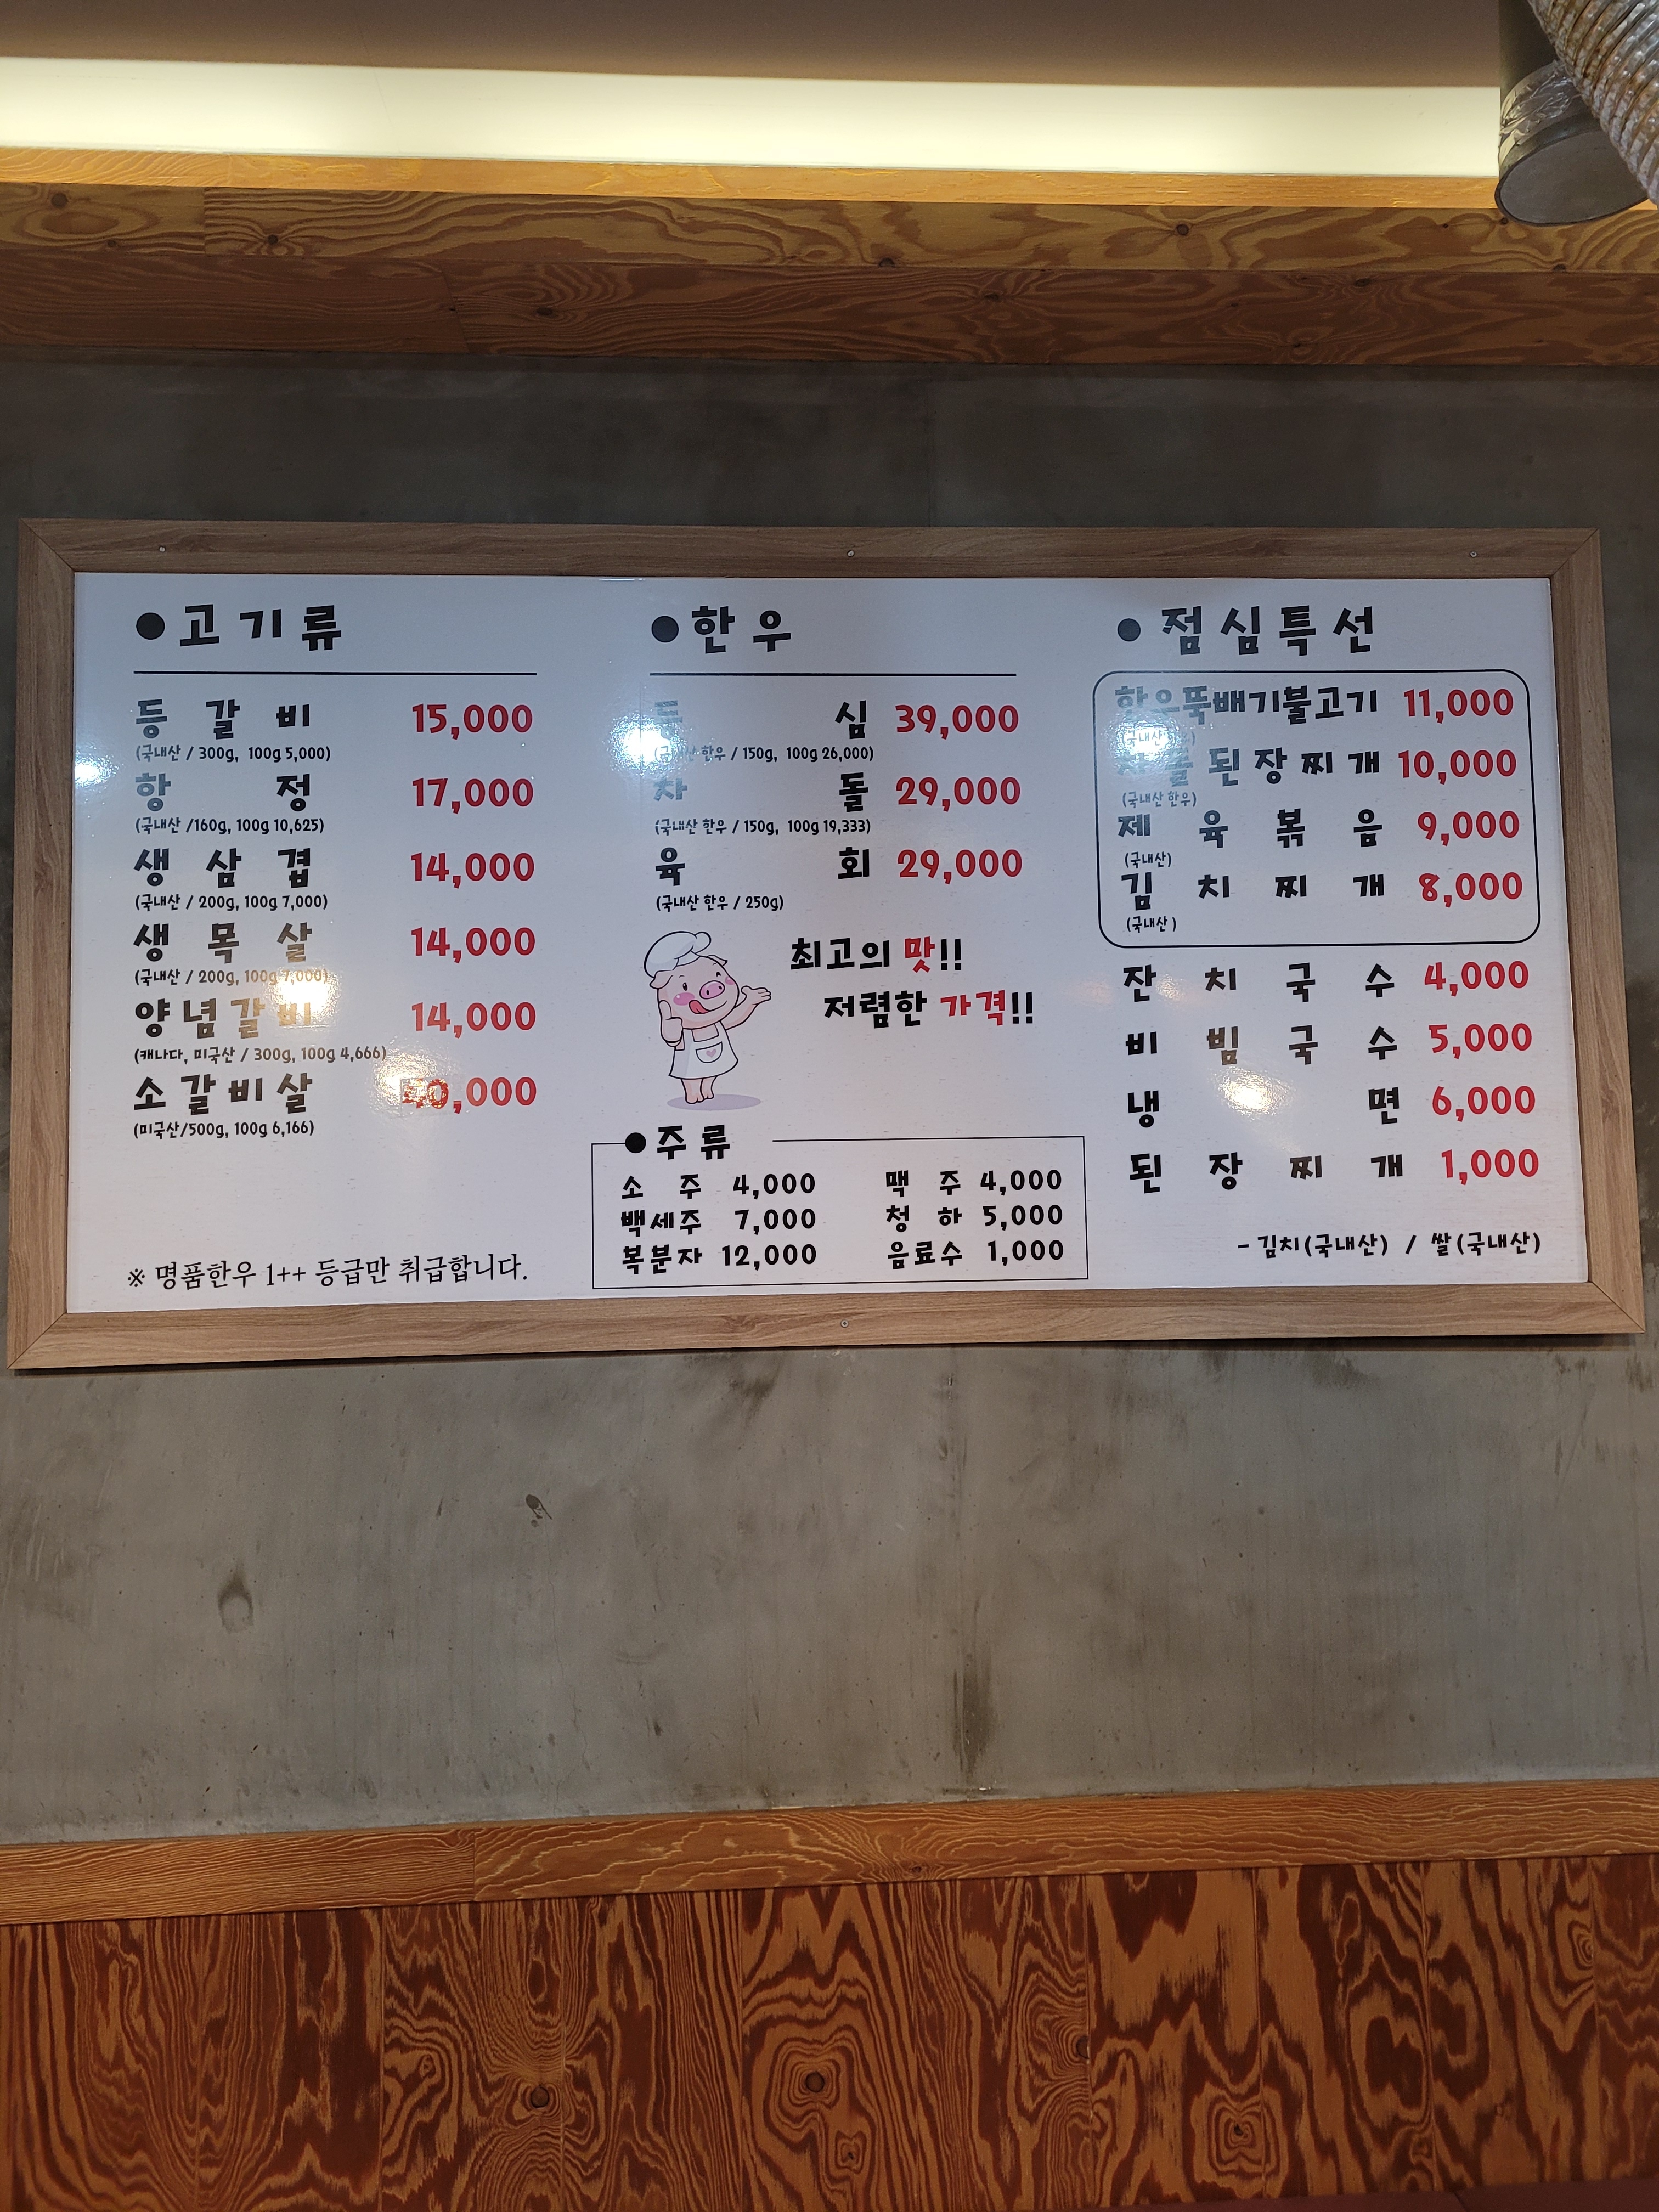 ●고기류
등갈비 15,000
(국내산 / 300g, 100g 5,000)
항정 17,000
(국내산 /160g, 100g 10,625)
생삼겹 14,000
(국내산 / 200g, 100g 7,000)
생목살 14,000
(국내산 / 200g, 100g 7,000)
양념갈비 14,000
(캐나다, 미국산 / 300g, 100g 4,666)
소갈비살
(미국산/500g, 100g 6,166)
※ 명품한우 1++ 등급만 취급합니다.
●한우
등심 39,000
(국내산 한우 / 150g, 100g 26,000)
차돌 29,000
(국내산 한우 / 150g, 100g 19,333)
육회 29,000
(국내산 한우 / 250g)
최고의 맛!!
저렴한 가격!!
●주류
소주 4,000 맥주 4,000
백세주 7,000 청하 5,000
복분자 12,000 음료수 1,000
●점심특선
한우뚝배기불고기 11,000
차돌된장찌개 10,000
(국내산 한우)
제육볶음 9,000
(국내산)
김치찌개 8,000
(국내산)
잔치국수 4,000
비빔국수 5,000
냉면 6,000
된장찌개 1,000
-김치(국내산) / 쌀(국내산)